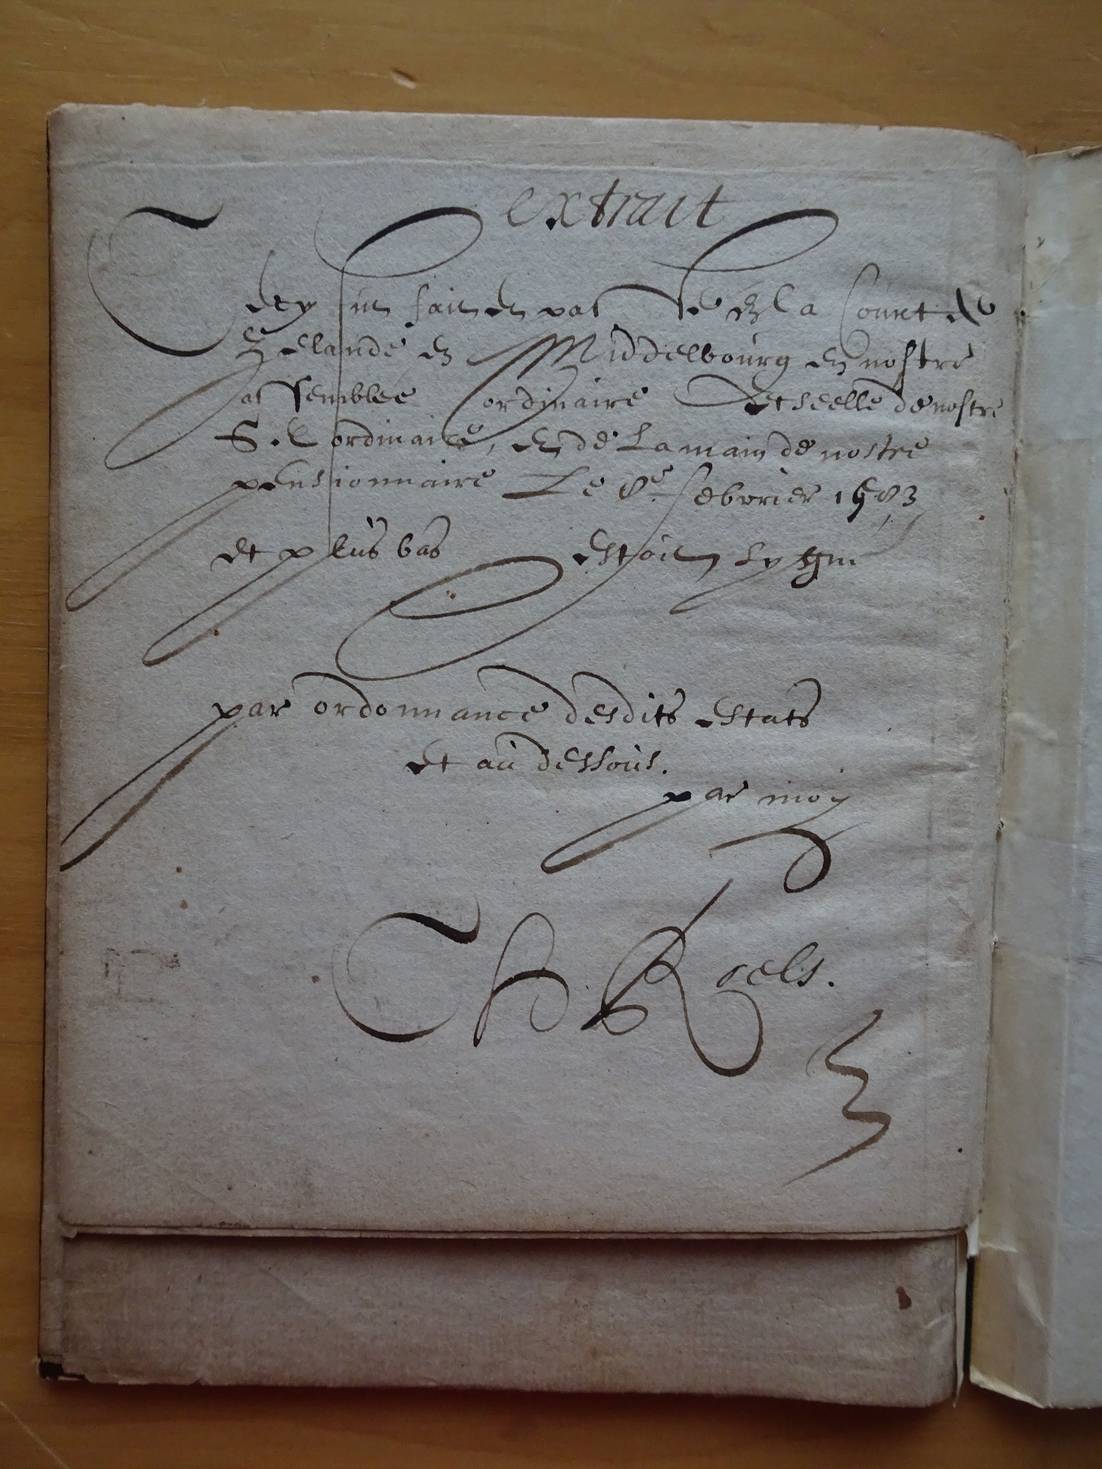 extrait
Cecy fut fait et passé en la Court de
Zelande en Middelbourg en nostre
assemblée ordinaire et seelle de nostre
S.l ordinaire, et de la main de nostre
pensionnaire Le 8e febvrier 1583
et plus bas estoit sygné
par ordonnance desdits estats
et au dessous.
par moy
Ch. Roels.